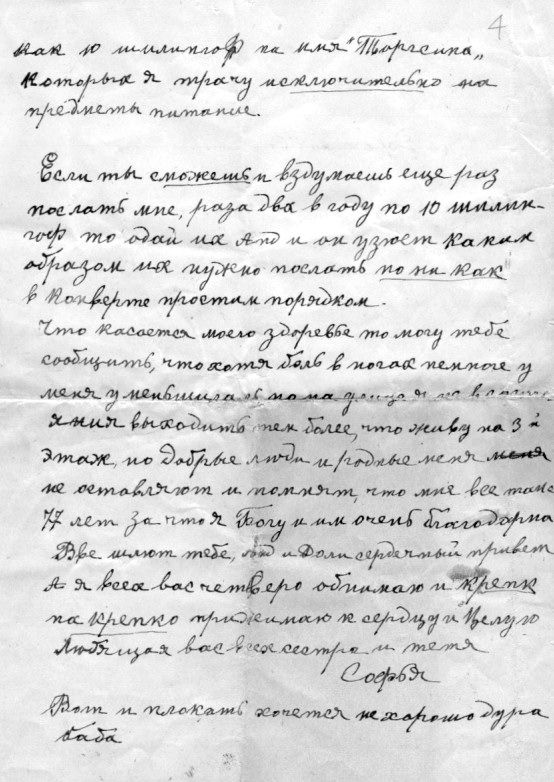 4
как 10 шилингоф на имя "Торгсина„
которых я трачу исключительно на
предметы питание.
Если ты сможешь и вздумаешь еще раз
послать мне, раза два в году по 10 шилин-
гоф то одай их And и он узюет каким
образом их нужно послать но ни как
в конверте простим порядком.
Что касается моего здоревье то могу тебе
сообщить, что хотя боль в ногах немноге у
меня уменьшилась но на улица я не в
яния выходить тем более, что живу на 3й
этаж, но добрые люди и родные меня меня
не оставляют и помнят, что мне все таки
77 лет за что я Богу и им очень благодарна
Все шлют тебе, And и Доли сердечный привет
А я всех вас четверо обнимаю и крепк
на крепко прижимаю к сердцу и целую
Любящая вас всех сестра и тетя
Софья
Вот и плакать хочется не хорошо дура
баба